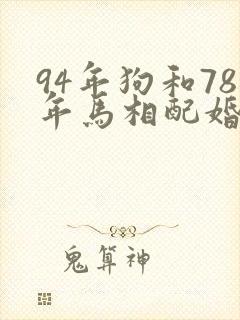 94年狗和78
年馬相配婚
鬼算神